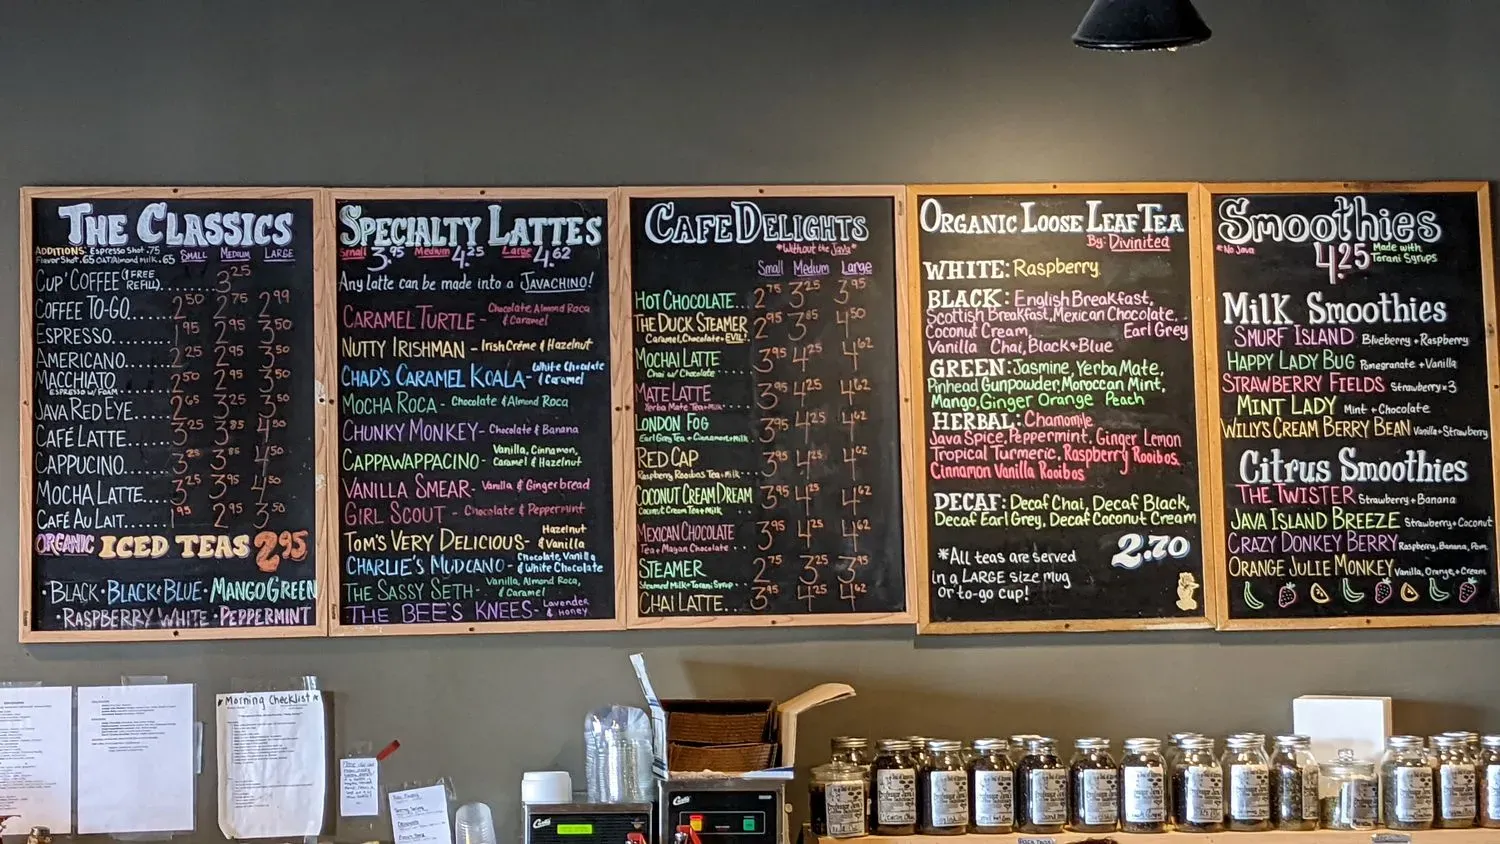 THE CLASSICS
ADDITIONS: Espresso Shot .75
Flavor Shot .65 OAT/Almond milk .65
SMALL MEDIUM LARGE
CUP' COFFEE (1 FREE REFILL) 3.25
COFFEE TO-GO....... 2.50 2.75 2.99
ESPRESSO....... 1.95 2.95 3.50
AMERICANO....... 2.25 2.95 3.50
MACCHIATO 2.50 2.95 3.50
ESPRESSO W/FOAM
JAVA RED EYE.... 2.65 3.25 3.50
CAFÉ LATTE..... 3.25 3.85 4.50
CAPPUCINO....... 3.25 3.85 4.50
MOCHA LATTE.... 3.25 3.95 4.50
CAFÉ AU LAIT....... 1.95 2.95 3.50
ORGANIC ICED TEAS 2.95
•BLACK•BLACK & BLUE•MANGO GREEN
•RASPBERRY WHITE•PEPPERMINT
SPECIALTY LATTES
Small 3.95 Medium 4.25 Large 4.62
Any latte can be made into a JAVACHINO!
CARAMEL TURTLE - Chocolate, Almond Roca & Caramel
NUTTY IRISHMAN - Irish Créme & Hazelnut
CHAD'S CARAMEL KOALA - White Chocolate & Caramel
MOCHA ROCA - Chocolate & Almond Roca
CHUNKY MONKEY - Chocolate & Banana
CAPPAWAPPACINO - Vanilla, Cinnamon, Caramel & Hazelnut
VANILLA SMEAR - Vanilla & Gingerbread
GIRL SCOUT - Chocolate & Peppermint
TOM'S VERY DELICIOUS - Hazelnut & Vanilla
CHARLIE'S MUDCANO - Chocolate, Vanilla & White Chocolate
THE SASSY SETH - Vanilla, Almond Roca, & Caramel
THE BEE'S KNEES - Lavender & Honey
CAFE DELIGHTS
*Without the Java*
Small Medium Large
HOT CHOCOLATE... 2.75 3.25 3.95
THE DUCK STEAMER 2.95 3.85 4.50
Caramel, Chocolate + EVIL!
MOCHAI LATTE 3.95 4.25 4.62
Chai w/ Chocolate
MATE LATTE 3.95 4.25 4.62
Yerba Mate Tea + Milk
LONDON FOG 3.95 4.25 4.62
Earl Grey Tea + Cinnamon + Milk
RED CAP 3.95 4.25 4.62
Raspberry Rooibos Tea + Milk
COCONUT CREAM DREAM 3.95 4.25 4.62
Coconut Cream Tea + Milk
MEXICAN CHOCOLATE 3.95 4.25 4.62
Tea + Mayan Chocolate
STEAMER 2.75 3.25 3.95
Steamed Milk + Torani Syrup
CHAI LATTE.. 3.95 4.25 4.62
ORGANIC LOOSE LEAF TEA
By: Divinitea
WHITE: Raspberry
BLACK: English Breakfast,
Scottish Breakfast, Mexican Chocolate,
Coconut Cream, Earl Grey
Vanilla Chai, Black & Blue
GREEN: Jasmine, Yerba Mate,
Pinhead Gunpowder, Moroccan Mint,
Mango, Ginger Orange Peach
HERBAL: Chamomile
Java Spice, Peppermint, Ginger Lemon
Tropical Turmeric, Raspberry Rooibos,
Cinnamon Vanilla Rooibos
DECAF: Decaf Chai, Decaf Black,
Decaf Earl Grey, Decaf Coconut Cream
*All teas are served
in a LARGE size mug
or to-go cup!
2.70
Smoothies
*No Java 4.25 Made with Torani Syrups
Milk Smoothies
SMURF ISLAND Blueberry + Raspberry
HAPPY LADY BUG Pomegranate + Vanilla
STRAWBERRY FIELDS Strawberry × 3
MINT LADY Mint + Chocolate
WILLY'S CREAM BERRY BEAN Vanilla + Strawberry
Citrus Smoothies
THE TWISTER Strawberry + Banana
JAVA ISLAND BREEZE Strawberry + Coconut
CRAZY DONKEY BERRY Raspberry, Banana, Pom.
ORANGE JULIE MONKEY Vanilla, Orange, + Cream
*Morning Checklist*
Curtis
Curtis